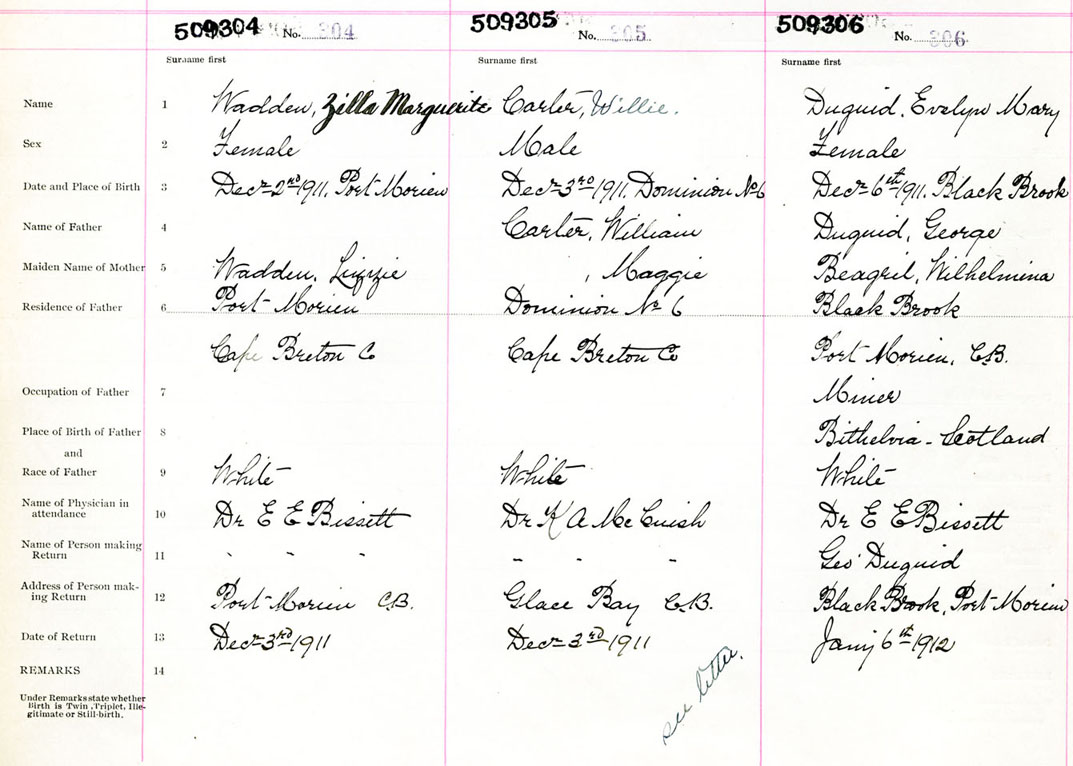 509304 No. 304 509305 No. 305 509306 No. 306
Surname first Surname first Surname first
Name 1 Wadden, Zilla Marguerite Carter, Willie. Duguid, Evelyn Mary
Sex 2 Female Male Female
Date and Place of Birth 3 Decr 2nd 1911. Port Morien Decr 3rd 1911. Dominion No 6 Decr 6th 1911. Black Brook
Name of Father 4 Carter, William Duguid, George
Maiden Name of Mother 5 Wadden, Lizzie , Maggie Beagril, Wilhelmina
Residence of Father 6 Port Morien Dominion No 6 Black Brook
Cape Breton Co Cape Breton Co Port Morien, C.B.
Occupation of Father 7 Miner
Place of Birth of Father 8 Bithelvia - Scotland
and
Race of Father 9 White White White
Name of Physician in
attendance 10 Dr E E Bissett Dr K A McCuish Dr E E Bissett
Name of Person making
Return 11 " " " " " " Geo Duguid
Address of Person mak-
ing Return 12 Port Morien C.B. Glace Bay C.B. Black Brook, Port Morien
Date of Return 13 Decr 3rd 1911 Decr 3rd 1911 Jany 6th 1912
REMARKS 14
see letter.
Under Remarks state whether
Birth is Twin, Triplet, Ille-
gitimate or Still-birth.